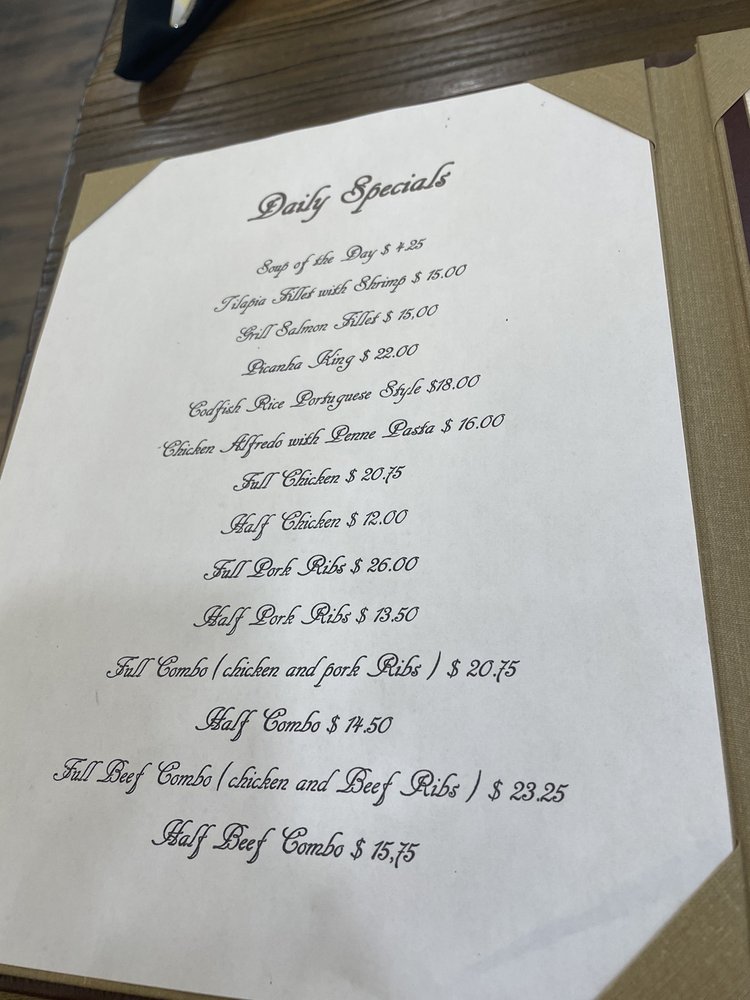 Daily Specials
Soup of the Day $ 4.25
Tilapia Fillet with Shrimp $ 15.00
Grill Salmon Fillet $ 15,00
Picanha King $ 22.00
Codfish Rice Portuguese Style $18.00
Chicken Alfredo with Penne Pasta $ 16.00
Full Chicken $ 20.75
Half Chicken $ 12.00
Full Pork Ribs $ 26.00
Half Pork Ribs $ 13.50
Full Combo ( chicken and pork Ribs ) $ 20.75
Half Combo $ 14.50
Full Beef Combo ( chicken and Beef Ribs ) $ 23.25
Half Beef Combo $ 15,75